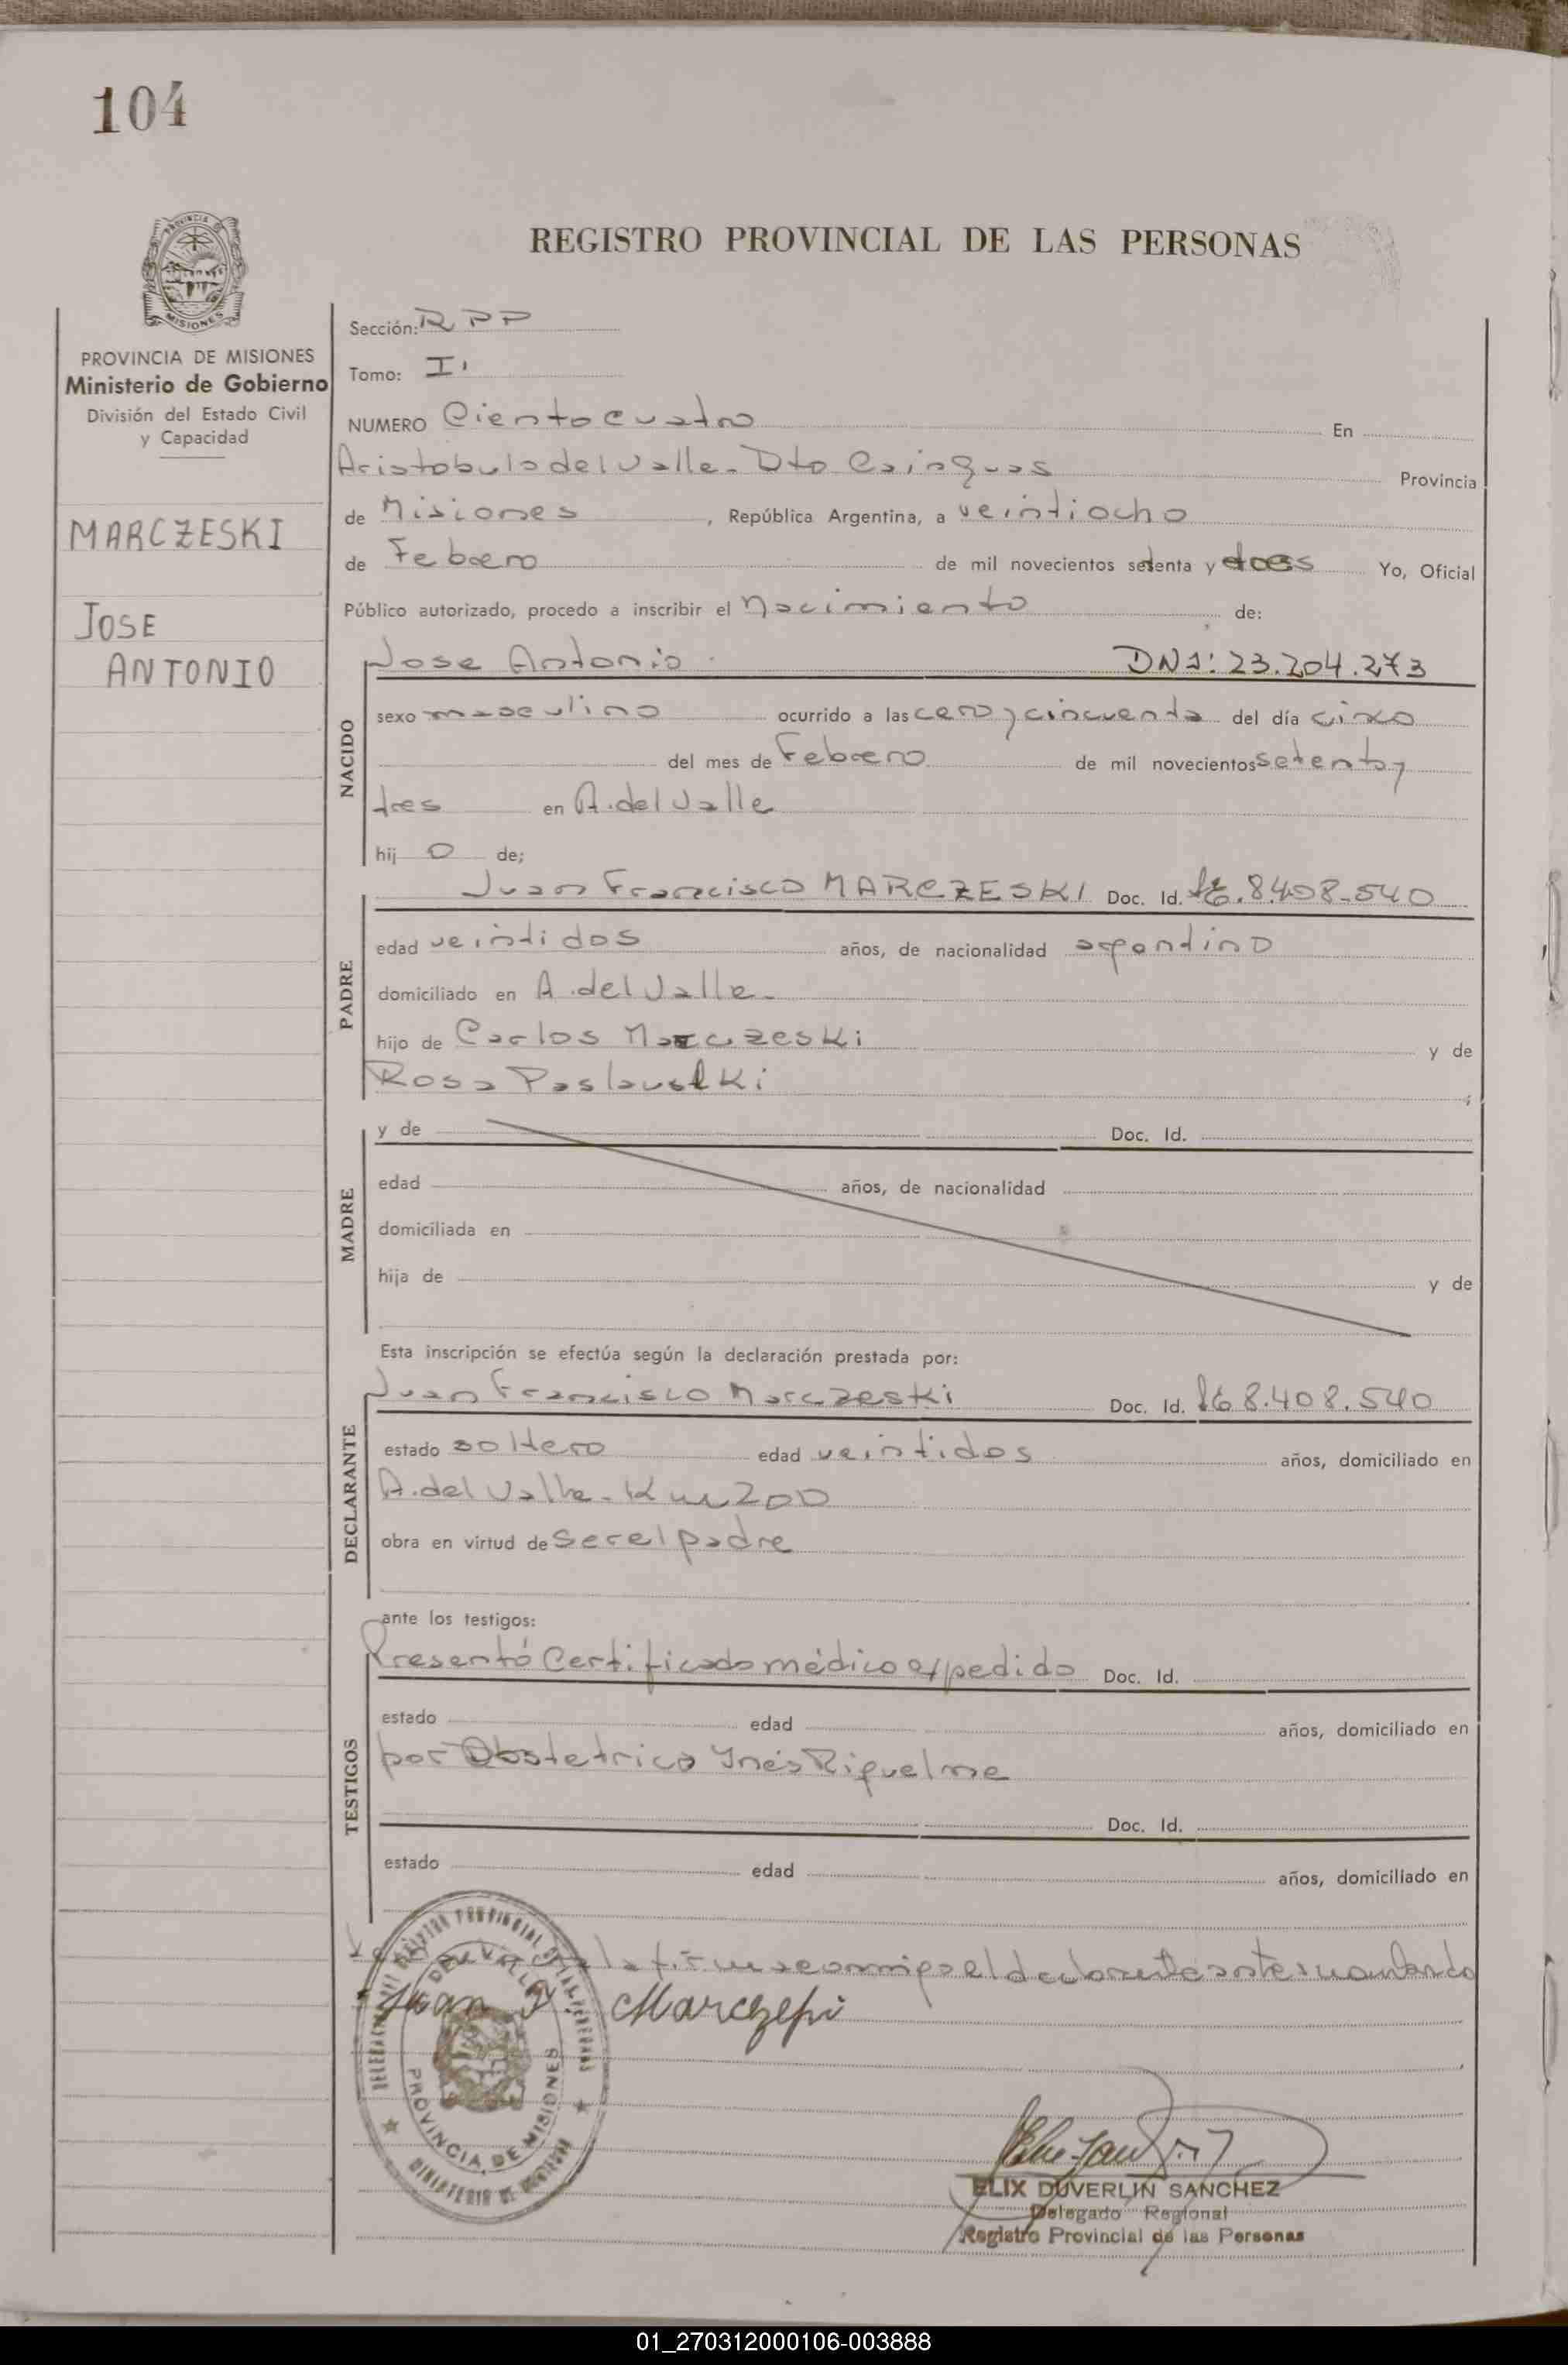 104
REGISTRO PROVINCIAL DE LAS PERSONAS
PROVINCIA DE MISIONES
Ministerio de Gobierno
División del Estado Civil
y Capacidad
MARCZESKI
JOSE
ANTONIO
Sección: RPP
Tomo: I
NUMERO Ciento cuatro En
Aristobulo del Valle - Dto Cainguas Provincia
de Misiones, República Argentina, a veintiocho
de Febrero de mil novecientos setenta y tres Yo, Oficial
Público autorizado, procedo a inscribir el nacimiento de:
NACIDO
Jose Antonio. DNI: 23.204.273
sexo masculino ocurrido a las cero y cincuenta del día cinco
del mes de Febrero de mil novecientos setenta y
tres en A. del Valle
hij o de;
PADRE
Juan Francisco MARCZESKI Doc. Id. LE. 8.408.540
edad veintidos años, de nacionalidad argentino
domiciliado en A. del Valle-
hijo de Carlos Marczeski y de
Rosa
MADRE
y de Doc. Id.
edad años, de nacionalidad
domiciliada en
hija de y de
Esta inscripción se efectúa según la declaración prestada por:
DECLARANTE
Juan Francisco Marczeski Doc. Id. LE 8.408.540
estado soltero edad veintidos años, domiciliado en
A. del Valle - Km 200
obra en virtud de ser el padre
ante los testigos:
TESTIGOS
Presentó Certificado médico expedido Doc. Id.
estado edad años, domiciliado en
por Obstetrica Inés Riquelme
Doc. Id.
estado edad años, domiciliado en
la firma conmigo el declarante
Juan F. Marczeski
DEL VALLE
PROVINCIA DE MISIONES
ELIX DUVERLIN SANCHEZ
Delegado Regional
Registro Provincial de las Personas
01_270312000106-003888